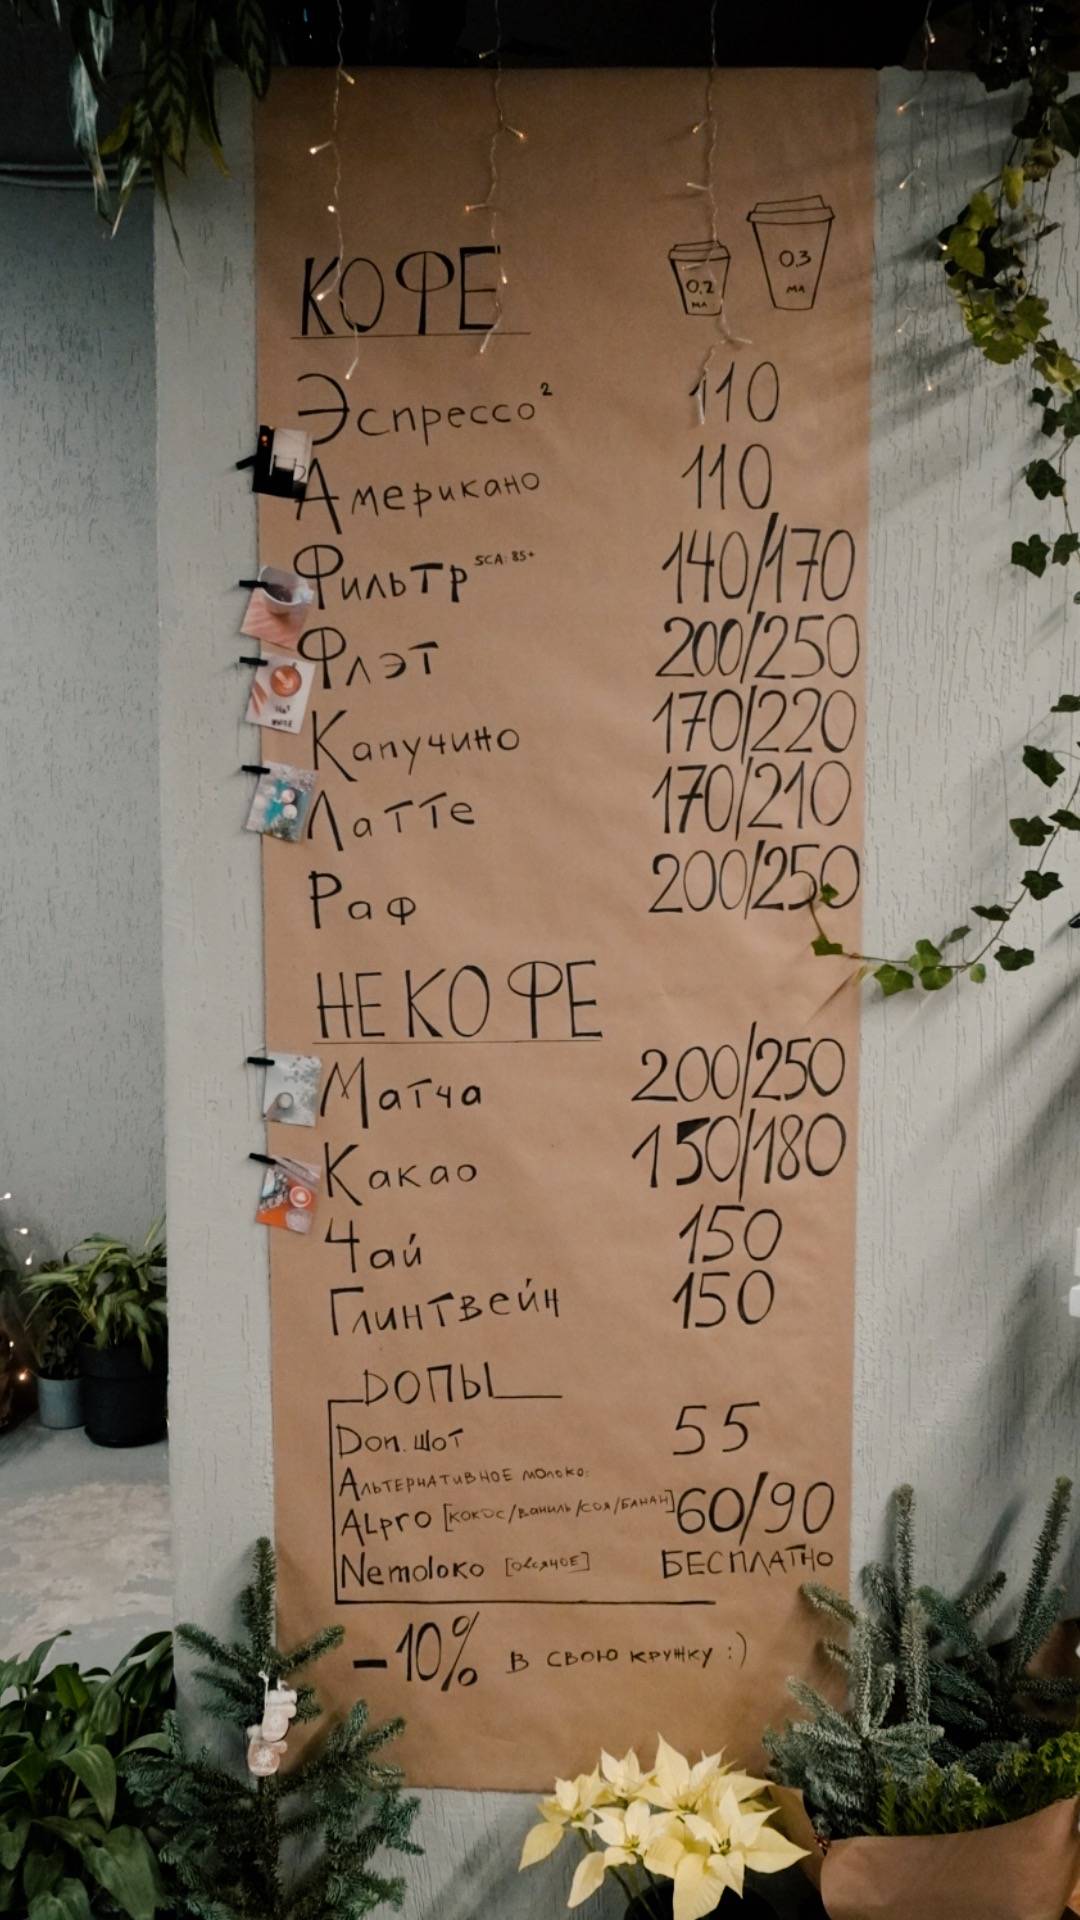 0,2 МЛ
0,3 МЛ
КОФЕ
Эспрессо² 110
Американо 110
Фильтр SCA: 85+ 140/170
Флэт 200/250
Капучино 170/220
Латте 170/210
Раф 200/250
НЕ КОФЕ
Матча 200/250
Какао 150/180
Чай 150
Глинтвейн 150
ДОПЫ
Доп. шот 55
Альтернативное молоко:
ALpro [кокос/ваниль/соя/банан] 60/90
Nemoloko [овсяное] БЕСПЛАТНО
-10% в свою кружку :)